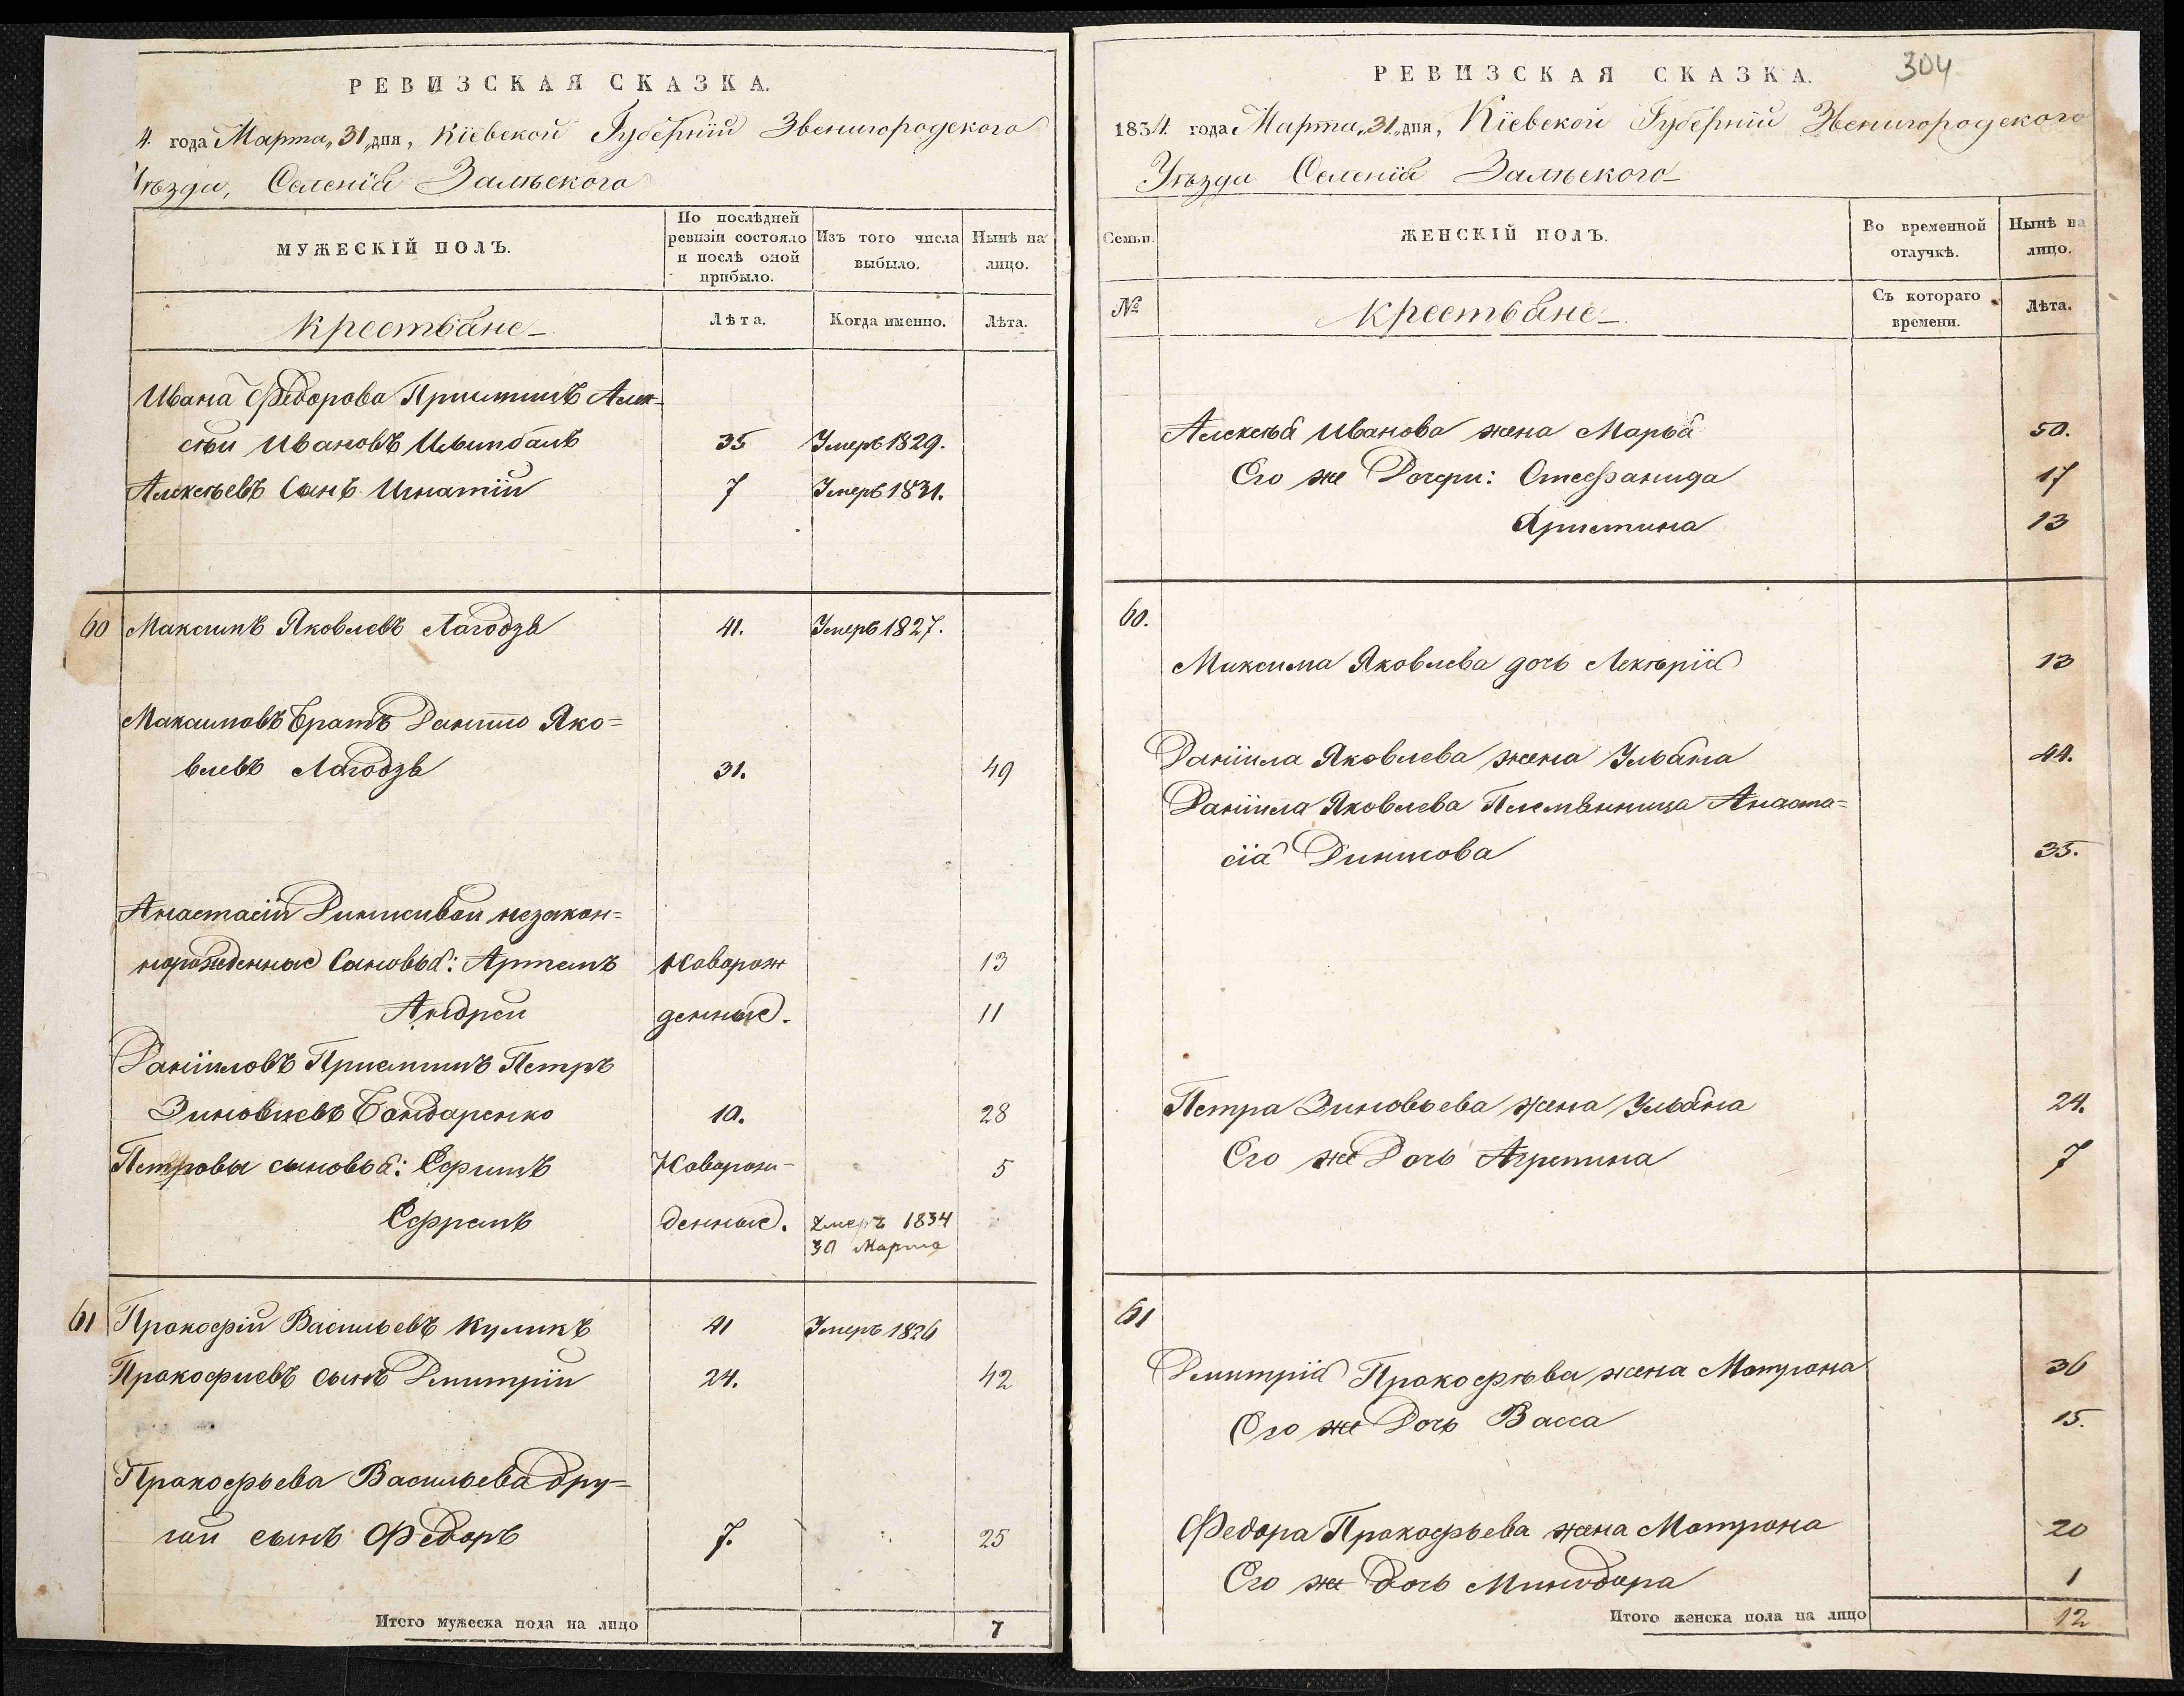 РЕВИЗСКАЯ СКАЗКА.
4. года Марта „31„ дня, Кіевской Губерніи Звенигородского
Уѣзда, Селенія Залѣского
МУЖЕСКІЙ ПОЛЪ.
По послѣдней ревизіи состояло и послѣ оной прибыло.
Изъ того числа выбыло.
Нынѣ на лицо.
Крестьяне
Лѣта.
Когда именно.
Лѣта.
Ивана Федорова Приимишъ Алек-
сѣи Ивановъ 35 Умеръ 1829.
Алексѣевъ Сынъ Игнатій 7 Умеръ 1831.
60 Максимъ Яковлевъ Лагодзя 41. Умеръ 1827.
Максимовъ Братъ Данило Яко=
влевъ Лагодзя 31. 49
Анастасіи незакон=
норожденные Сыновья: Артемъ Новорож 13
Андрей денные. 11
Даніиловъ Приемишъ Петръ
Зиновиевъ Бондаренко 10. 28
Петровы сыновья: Ефимъ Новорож- 5
Ефремъ денные. Умеръ 1834 30 Марта
61 Прокофій Васильевъ Куликъ 41 Умеръ 1826
Прокофиевъ сынъ Дмитрій 24. 42
Прокофьева Васильева дру=
гой сынъ Федоръ 7. 25
Итого мужеска пола на лицо 7
304
РЕВИЗСКАЯ СКАЗКА.
1834. года Марта „31„ дня, Кіевской Губерніи Звенигородского
Уѣзда Селенія Залѣского
Семьи.
ЖЕНСКІЙ ПОЛЪ.
Во временной отлучкѣ.
Нынѣ на лицо.
№
Крестьяне
Съ котораго времени.
Лѣта.
Алексѣя Иванова жена Марья 50.
Его же Дочери: Стефанида 17
Христина 13
60.
Максима Яковлева дочь Лекѣрія 13
Даніила Яковлева жена Ульяна 44.
Даніила Яковлева Племянница Анаста=
сія 35.
Петра Зиновьева жена Ульяна 24.
Его же Дочь Агрепина 7
61
Дмитрія Прокофѣва жена Матрона 36
Его же Дочь Васса 15.
Федора Прокофьева жена Матрона 20
Его же дочь Минодора 1
Итого женска пола на лицо 12